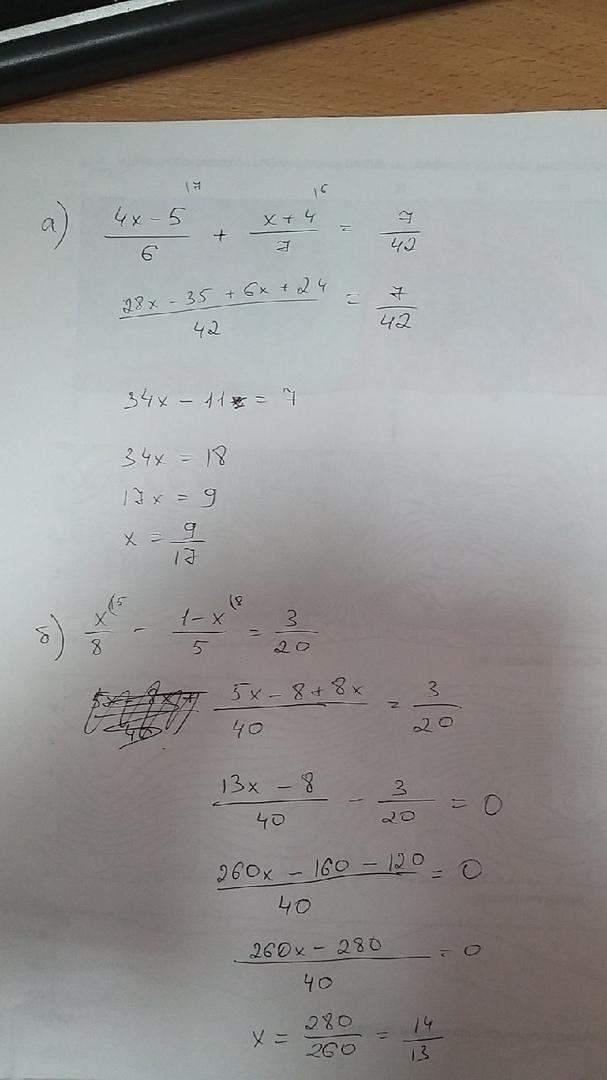 а) (4x - 5)/6 |7 + (x + 4)/7 |6 = 7/42
(28x - 35 + 6x + 24)/42 = 7/42
34x - 11 = 7
34x = 18
17x = 9
x = 9/17
б) x/8 (5 - (1 - x)/5 (8 = 3/20
(5x - 8 + 8x)/40 = 3/20
(13x - 8)/40 - 3/20 = 0
(260x - 160 - 120)/40 = 0
(260x - 280)/40 = 0
x = 280/260 = 14/13